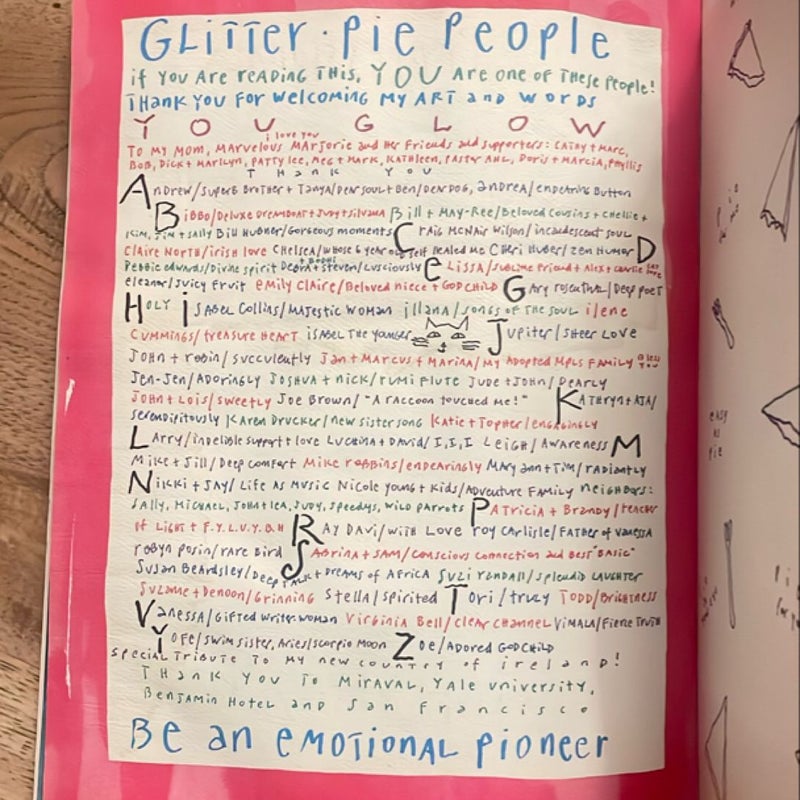 GLiTTer · Pie People
if YOU Are reading This, YOU Are one of These People!
Thank you for welcoming my ART and words
YOU GLOW
i love you
To my mom, marvelous marjorie and her friends and supporters: Cathy + Marc,
Bob, Dick + Marilyn, Patty Lee, Meg + Mark, Kathleen, Pastor Ahl, Doris + Marcia, Phyllis
Thank you
Andrew/superb brother + Tanya/dear soul + Ben/dear dog, andrea/endearing button
Bibbo/Deluxe Dreamboat + Judy + silvana Bill + May-Ree/Beloved cousins + Chellie +
Kim, Jim + sally Bill Hubner/Gorgeous moments Craig McNair Wilson/incandescent soul
Claire North/irish love Chelsea/whose 6 year old self healed me Cheri Huber/zen Humor
+ Bodhi
Debbie edwards/Divine spirit Debra + steven/Lusciously eLissa/sublime friend + Alex +
eleanor/juicy fruit emily Claire/Beloved niece + GODCHILD Gary rosenthal/Deep poet
Holy isabel Collins/majestic woman illana/songs of the soul ilene
Cummings/treasure heart isabel the younger Jupiter/sheer love
John + robin/succulently Jan + Marcus + Marina/my adopted mpls family bless you
Jen-Jen/Adoringly Joshua + nick/rumi flute Jude + John/Dearly
John + Lois/sweetly Joe Brown/"A raccoon touched me!" Kathryn + AJA/
serendipitously Karen Drucker/new sister song Katie + Topher/engagingly
Larry/indelible support + love Luchina + David/I,I,I Leigh/Awareness
Mike + Jill/Deep comfort Mike robbins/endearingly Mary ann + Tim/radiantly
Nikki + Jay/Life As Music Nicole young + kids/Adventure Family neighbors:
Sally, Michael, John + lea, Judy, speedys, wild parrots Patricia + Brandy/teacher
of Light + F.Y.L.U.Y.B.H Ray Davi/with Love roy Carlisle/Father of vanessa
robyn posin/rare Bird Sabrina + sam/conscious connection and best "Basic"
Susan Beardsley/Deep talk + dreams of Africa Suzi randall/splendid laughter
Suzanne + Denoon/Grinning Stella/spirited Tori/truly Todd/Brightness
Vanessa/Gifted writer woman Virginia Bell/clear channel Vimala/Fierce Truth
Yofe/swim sister, Aries/scorpio moon Zoe/Adored GODCHILD
special Tribute To my new country of ireland!
Thank you To Miraval, Yale university,
Benjamin Hotel and San Francisco
Be an emotional pioneer
easy
as
pie